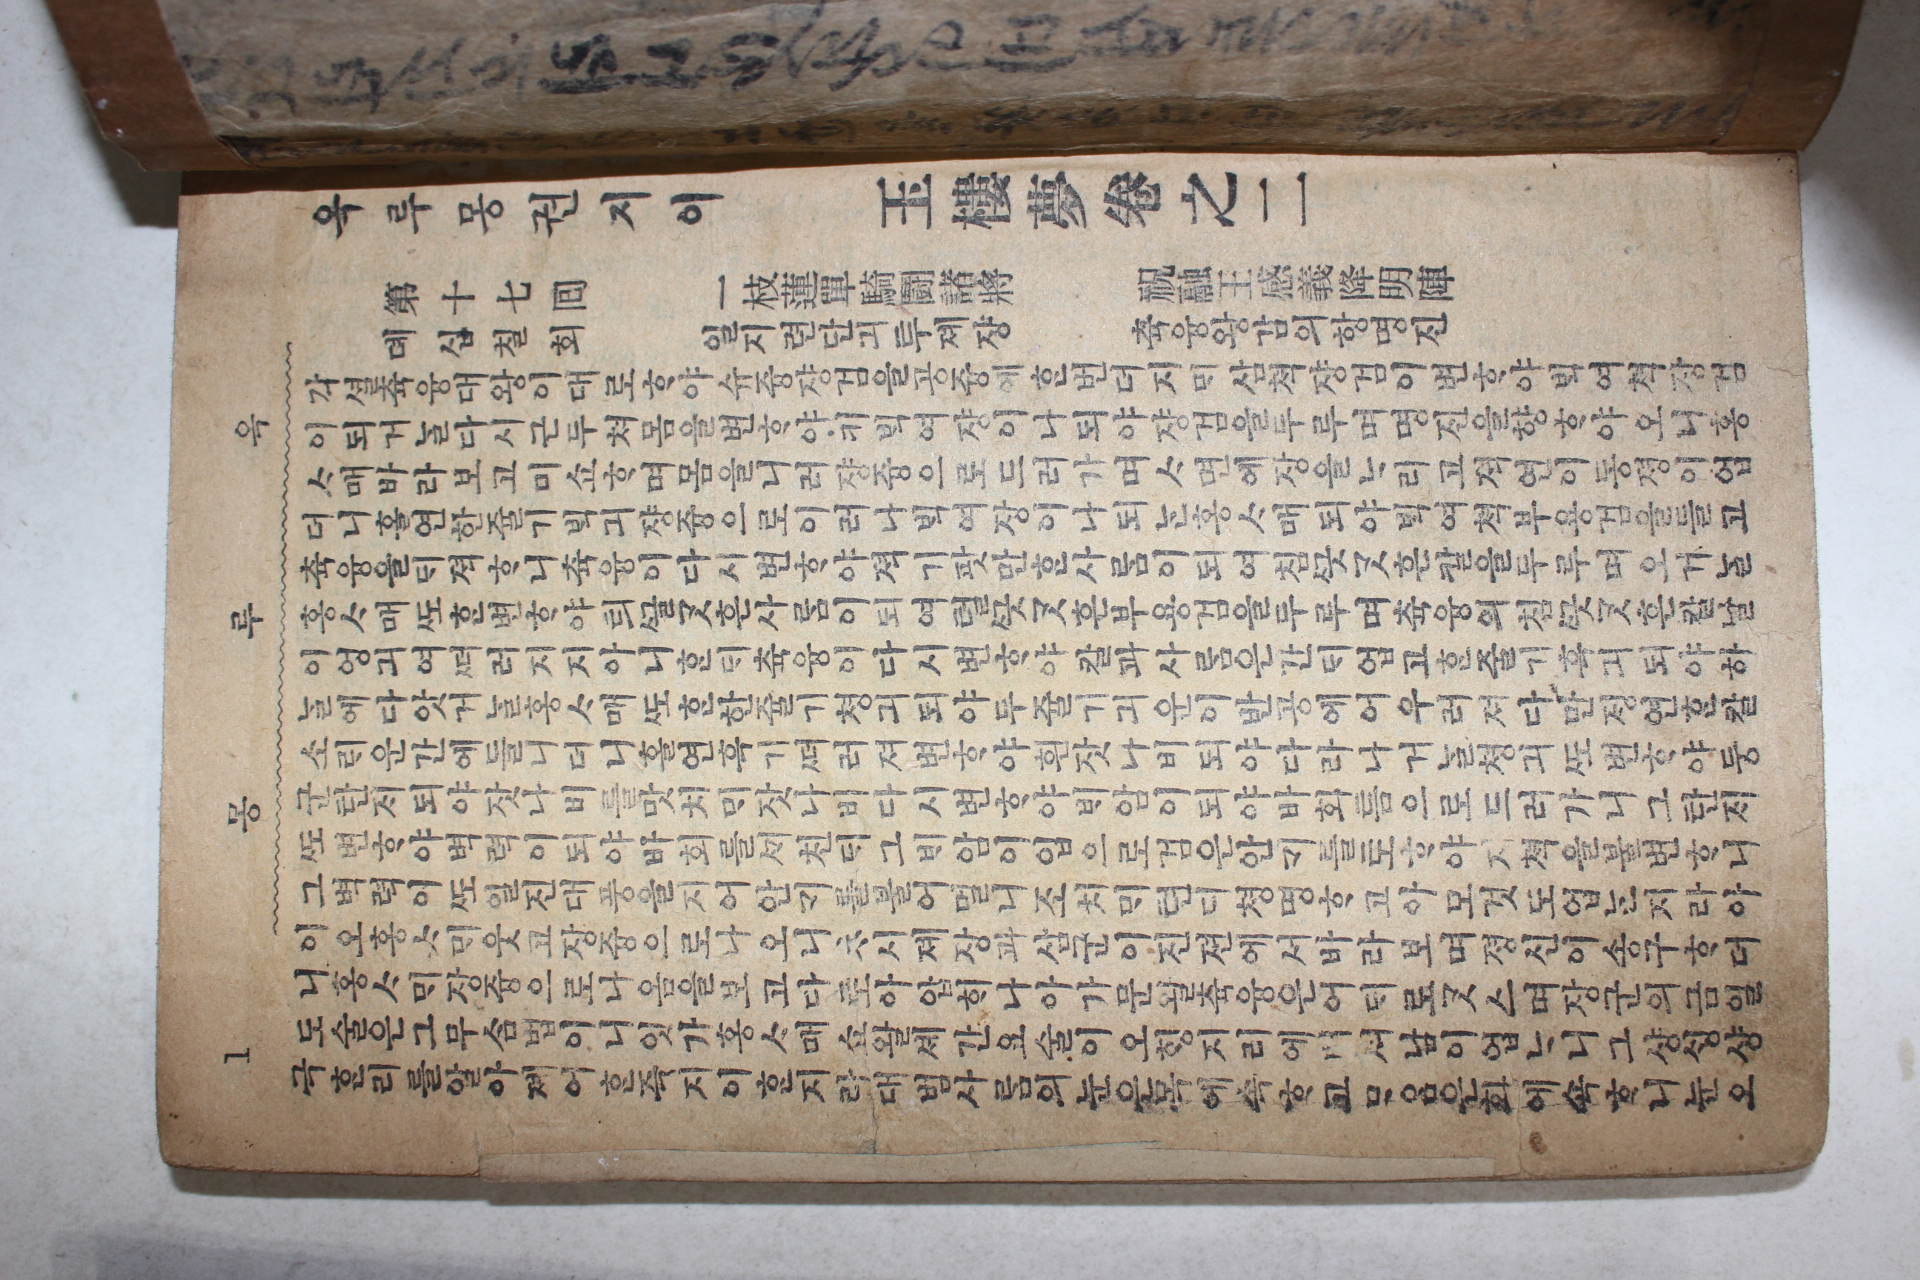 옥루몽권지이 玉樓夢卷之二
第十七回 一枝蓮單騎鬪諸將 祝融王感義降明陣
뎨십칠회 일지련단긔투졔쟝 츅융왕감의항명진
각셜츅융대왕이대로ᄒᆞ야슈즁쟝검을공즁에ᄒᆞᆫ번더지ᄆᆡ삼쳑쟝검이변ᄒᆞ야ᄇᆡᆨ여쳑장검
이되거ᄂᆞᆯ다시근두쳐몸을변ᄒᆞ야키ᄇᆡᆨ여쟝이나되야쟝검을두루며명진을향ᄒᆞ야오니홍
ᄉᆞ매바라보고미쇼ᄒᆞ며몸을니러쟝즁으로드러가며ᄉᆞ면에장을ᄂᆞ리고젹연이동졍이업
더니홀연한쥴기ᄇᆡᆨ긔쟝즁으로이러나ᄇᆡᆨ여장이나되ᄂᆞᆫ홍ᄉᆞ매되야ᄇᆡᆨ여쳑부용검을들고
츅융을ᄃᆡ젹ᄒᆞ니츅융이다시변ᄒᆞ야젹기팟만ᄒᆞᆫ사ᄅᆞᆷ이되여침ᄭᅳᆺᄀᆞᆺ흔칼을두루며오거ᄂᆞᆯ
홍ᄉᆞ매ᄯᅩᄒᆞᆫ변ᄒᆞ야틔ᄭᅳᆯᄀᆞᆺ흔사ᄅᆞᆷ이되여털ᄭᅳᆺᄀᆞᆺ흔부용검을두루며츅융의침ᄭᅳᆺᄀᆞᆺ흔칼날
이엉긔여ᄯᅥ러지지아니ᄒᆞᆫᄃᆡ츅융이다시변ᄒᆞ야칼과사ᄅᆞᆷ은간ᄃᆡ업고ᄒᆞᆫ줄기흑긔되야하
ᄂᆞᆯ에다앗거ᄂᆞᆯ홍ᄉᆞ매ᄯᅩᄒᆞᆫ한쥴기쳥긔되야두쥴기긔운이반공에어우러져다만징연ᄒᆞᆫ칼
소ᄅᆡ운간에들니더니홀연흑기ᄯᅥ러져변ᄒᆞ야흰잣나비되야다라나거ᄂᆞᆯ쳥긔ᄯᅩ변ᄒᆞ야둥
군탄지되야잣나비를맛치ᄆᆡ잣나비다시변ᄒᆞ야ᄇᆡ암이되야바회틈으로드러가니그탄지
ᄯᅩ변ᄒᆞ야벽력이되야바회를ᄭᆡ친ᄃᆡ그ᄇᆡ암이입으로검은안ᄀᆡ를토ᄒᆞ야지쳑을불변ᄒᆞ니
그벽력이ᄯᅩ일진대풍을지어안ᄀᆡ를불어멀니조치ᄆᆡ텬디쳥명ᄒᆞ고아모것도업ᄂᆞᆫ지라아
이오홍ᄉᆞᄆᆡ웃고장즁으로나오니ᄎᆞ시졔장과삼군이진젼에서바라보며졍신이송구ᄒᆞ더
니홍ᄉᆞᄆᆡ장즁으로나옴을보고다토아압ᄒᆡ나아가문왈츅융은어ᄃᆡ로ᄀᆞᆺ스며장군의금일
도술은그무슴법이니잇가홍ᄉᆞ매쇼왈셰간요술이오ᄒᆡᆼ지리에버셔남이업ᄂᆞ니그샹ᄉᆡᆼ샹
극ᄒᆞᆫ리를알아졔어ᄒᆞᆫ즉지이ᄒᆞᆫ지라대범사ᄅᆞᆷ의눈은목에속ᄒᆞ고ᄆᆞᄋᆞᆷ은화에속ᄒᆞ니눈오
옥루몽
1